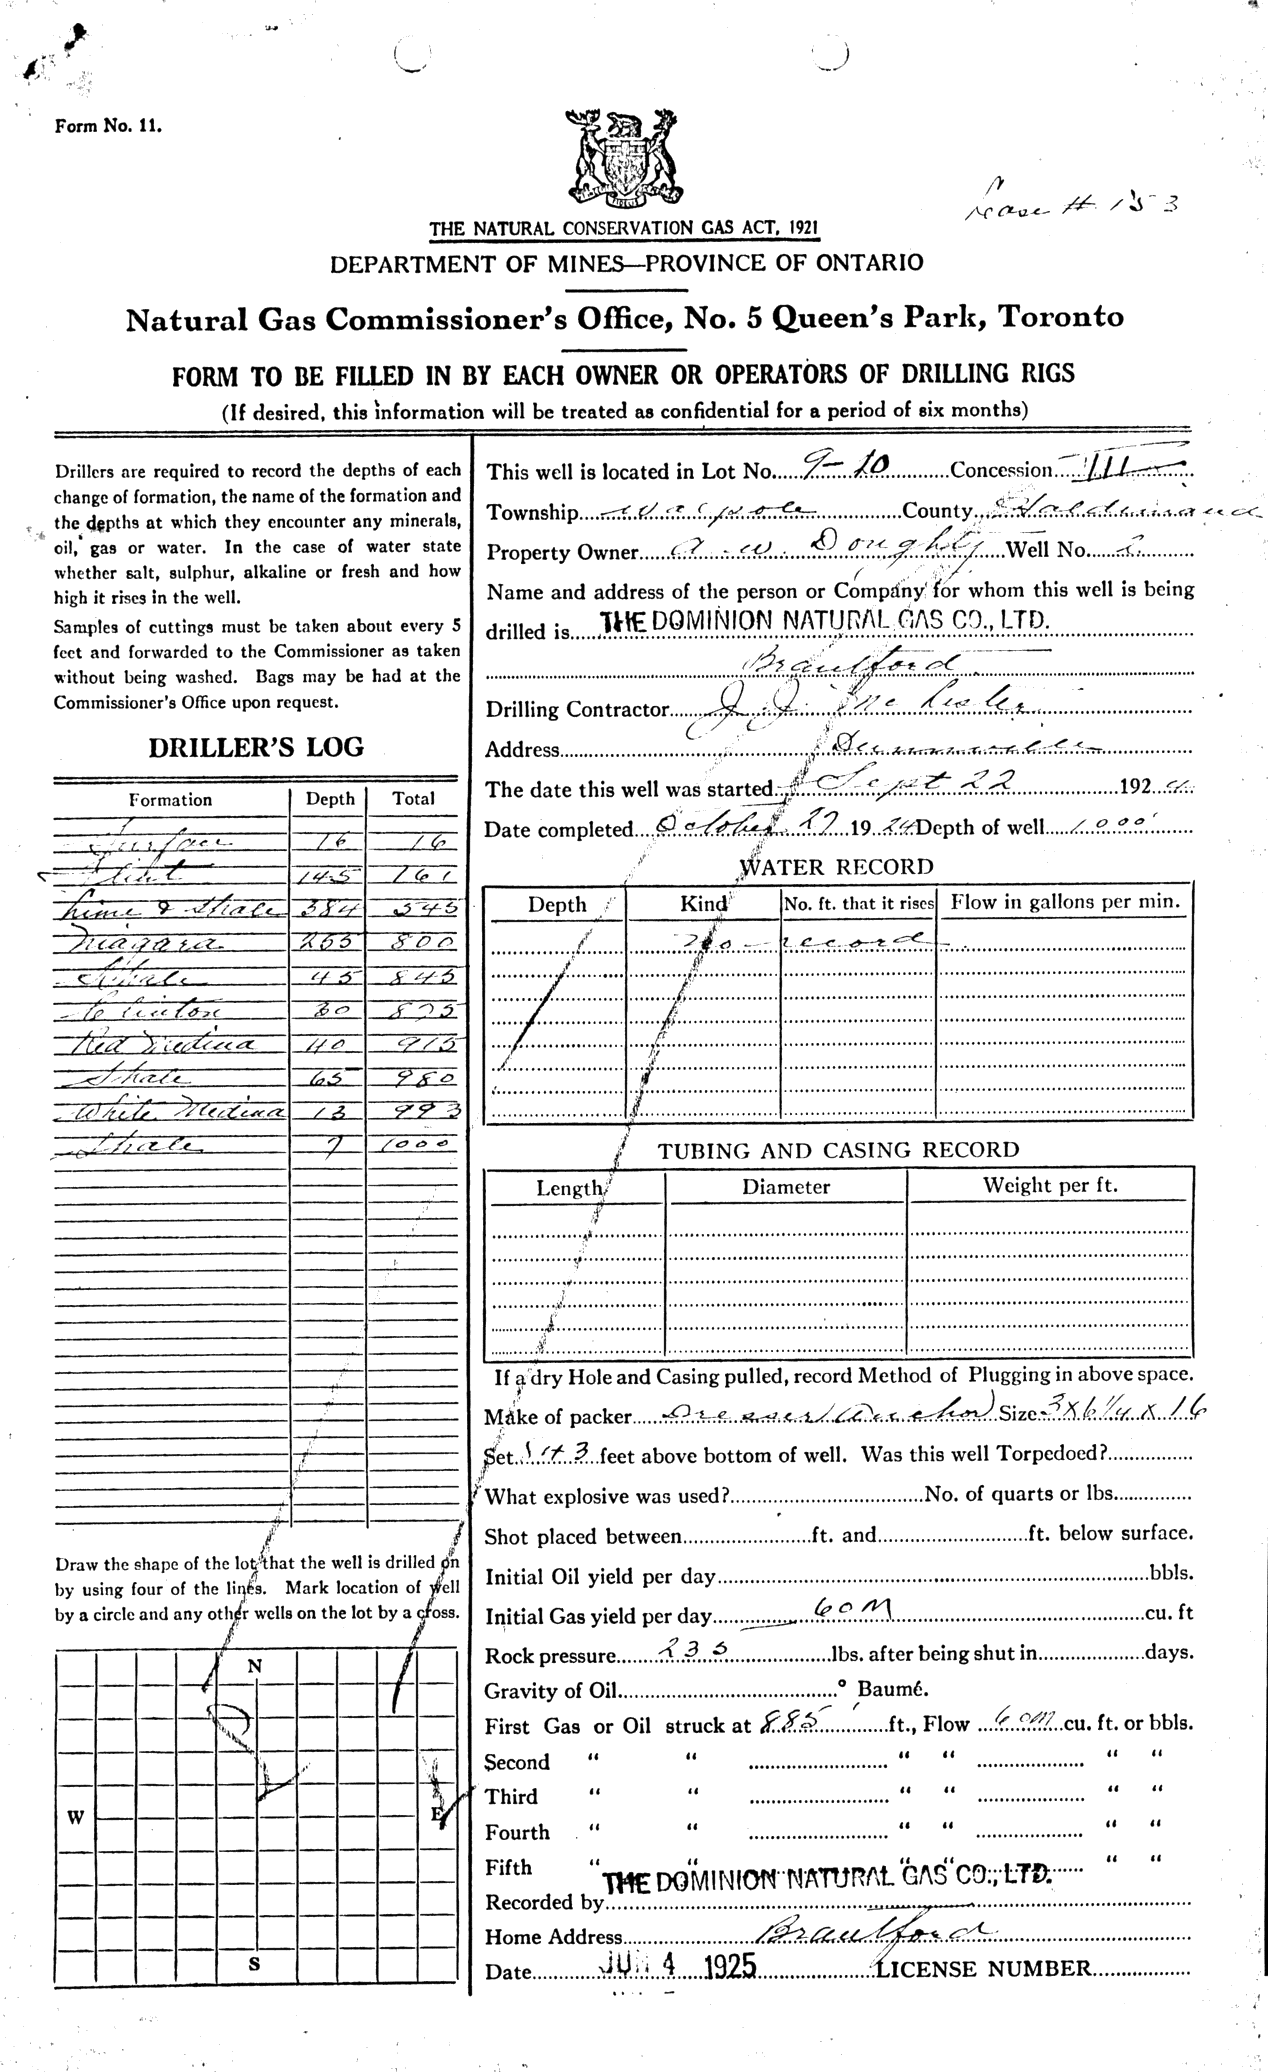 Form No. 11.
Lease # 153
THE NATURAL CONSERVATION GAS ACT, 1921
DEPARTMENT OF MINES—PROVINCE OF ONTARIO
Natural Gas Commissioner's Office, No. 5 Queen's Park, Toronto
FORM TO BE FILLED IN BY EACH OWNER OR OPERATORS OF DRILLING RIGS
(If desired, this information will be treated as confidential for a period of six months)
Drillers are required to record the depths of each
change of formation, the name of the formation and
the depths at which they encounter any minerals,
oil, gas or water. In the case of water state
whether salt, sulphur, alkaline or fresh and how
high it rises in the well.
Samples of cuttings must be taken about every 5
feet and forwarded to the Commissioner as taken
without being washed. Bags may be had at the
Commissioner's Office upon request.
DRILLER'S LOG
Formation Depth Total
Surface 16 16
Flint 145 161
Lime & Shale 384 545
Niagara 255 800
Shale 45 845
Clinton 30 875
Red Medina 40 915
Shale 65 980
White Medina 13 993
Shale 7 1000
Draw the shape of the lot that the well is drilled on
by using four of the lines. Mark location of well
by a circle and any other wells on the lot by a cross.
N
W E
S
This well is located in Lot No. 9-10 Concession III
Township Walpole County Haldimand
Property Owner A. W. Doughty Well No. 2
Name and address of the person or Company for whom this well is being
drilled is THE DOMINION NATURAL GAS CO., LTD.
Brantford
Drilling Contractor J. J.
Address Dunnville
The date this well was started Sept 22 1924
Date completed October 27 1924 Depth of well 1000'
WATER RECORD
Depth Kind No. ft. that it rises Flow in gallons per min.
No record
TUBING AND CASING RECORD
Length Diameter Weight per ft.
If a dry Hole and Casing pulled, record Method of Plugging in above space.
Make of packer Dresser Anchor Size 3 x 6 1/4 x 16
Set feet above bottom of well. Was this well Torpedoed?
What explosive was used? No. of quarts or lbs.
Shot placed between ft. and ft. below surface.
Initial Oil yield per day bbls.
Initial Gas yield per day 60 M cu. ft
Rock pressure 235 lbs. after being shut in days.
Gravity of Oil ° Baumé.
First Gas or Oil struck at 885 ft., Flow 60M cu. ft. or bbls.
Second " " " " " "
Third " " " " " "
Fourth " " " " " "
Fifth " " " " " "
Recorded by THE DOMINION NATURAL GAS CO., LTD.
Home Address Brantford
Date 4 1925 LICENSE NUMBER